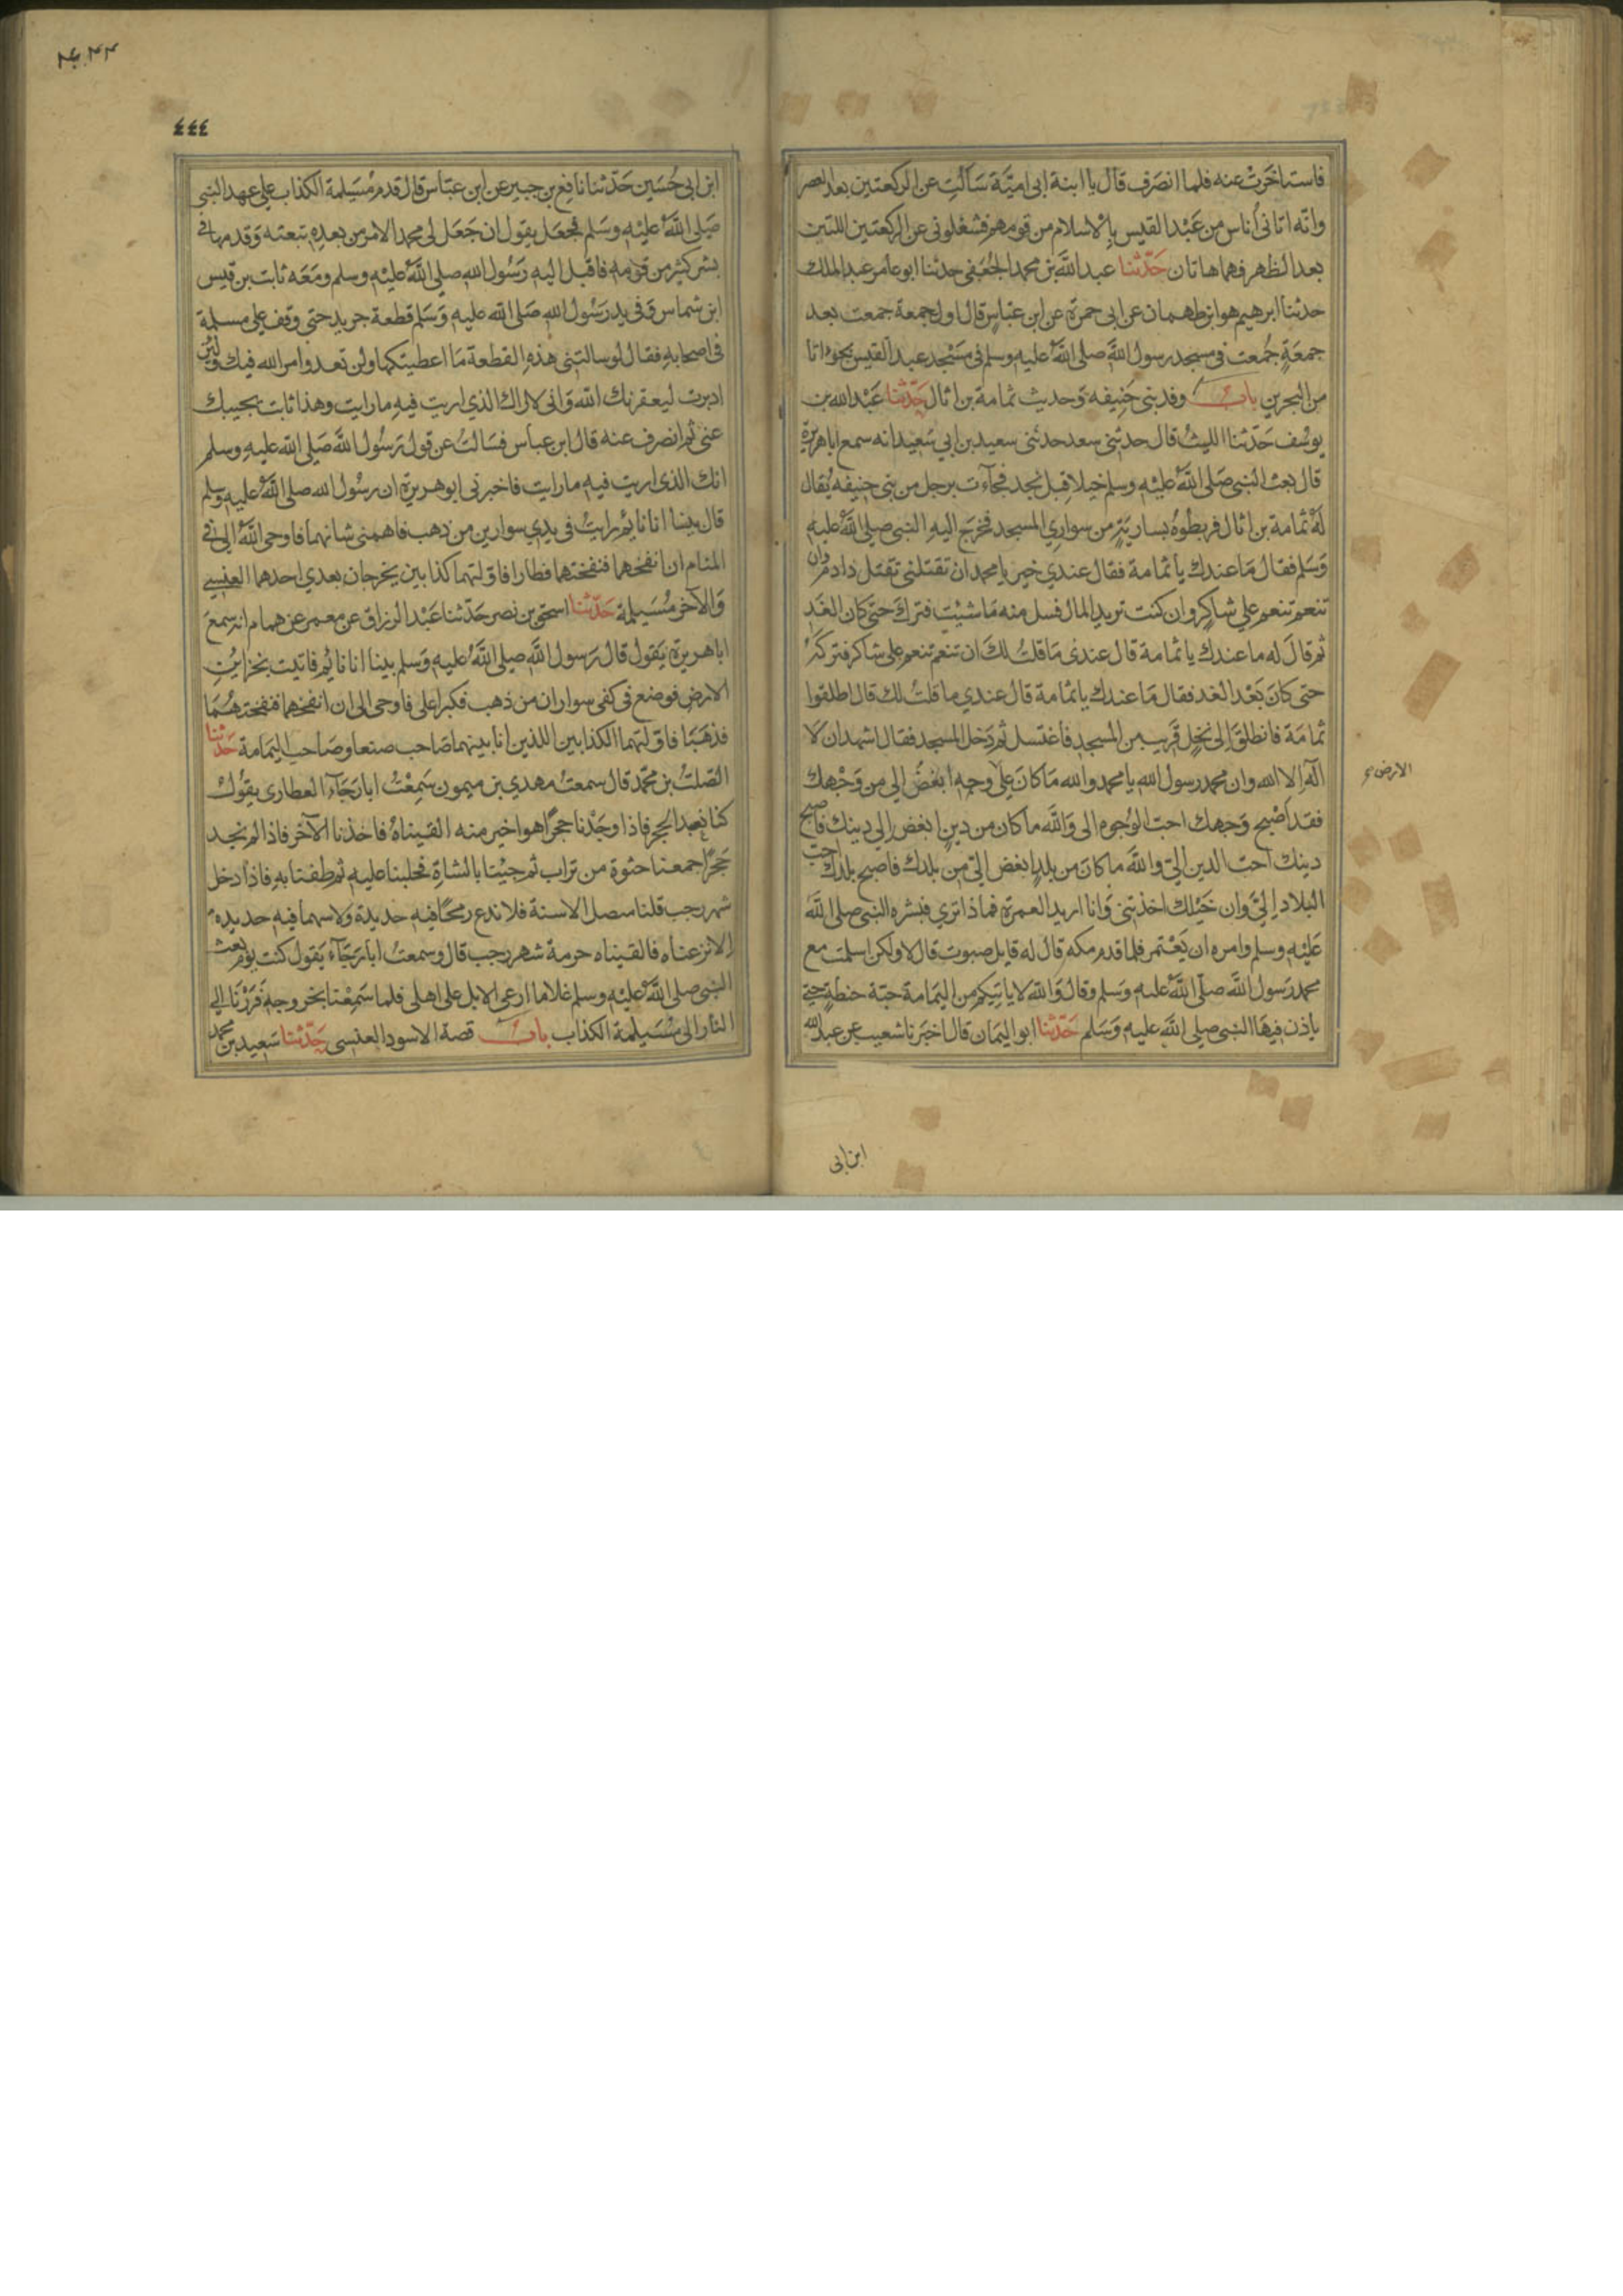 فاستاخرت عنه فلما انصرف قال يا ابنة ابى امية سالت عن الركعتين بعد العصر
وانه اتانى أناس من عبد القيس بالاسلام من قومهم فشغلونى عن الركعتين اللتين
بعد الظهر فهما هاتان حدثنا عبد الله بن محمد الجعفى حدثنا ابو عامر عبد الملك
حدثنا ابرهيم هو ابن طهمان عن ابى حمزة عن ابن عباس قال اول جمعة جمعت بعد
جمعة جمعت فى مسجد رسول الله صلى الله عليه وسلم فى مسجد عبد القيس بجواثا
من البحرين باب وفد بنى حنيفه وحديث ثمامة بن اثال حدثنا عبد الله بن
يوسف حدثنا الليث قال حدثنى سعد حدثنى سعيد بن ابي سعيد انه سمع ابا هريرة
قال بعث النبى صلى الله عليه وسلم خيلا قبل نجد فجاءت برجل من بنى حنيفه يقال
له ثمامة بن اثال فربطوه بسارية من سواري المسجد فخرج اليه النبى صلى الله عليه
وسلم فقال ما عندك يا ثمامة فقال عندي خير يا محمد ان تقتلنى تقتل ذا دم وان
تنعم تنعم على شاكر وان كنت تريد المال فسل منه ما شيت فترك حتى كان الغد
ثم قال له ما عندك يا ثمامة قال عندى ما قلت لك ان تنعم تنعم على شاكر فتركه
حتى كان بعد الغد فقال ما عندك يا ثمامة قال عندي ما قلت لك قال اطلقوا
ثمامة فانطلق الى نخل قريب من المسجد فاغتسل ثم دخل المسجد فقال اشهد ان لا
اله الا الله وان محمد رسول الله يا محمد والله ما كان على وجه ابغض الي من وجهك
الارض
فقد اصبح وجهك احب الوجوه الى والله ما كان من دين ابغض الي دينك فاصبح
دينك احب الدين الي والله ما كان من بلد ابغض الي من بلدك فاصبح بلدك احب
البلاد الي وان خيلك اخذتنى وانا اريد العمرة فماذا تري فبشره النبى صلى الله
عليه وسلم وامره ان يعتمر فلما قدم مكه قال له قايل صبوت قال لا ولكن اسلمت مع
محمد رسول الله صلى الله عليه وسلم وقال والله لا ياتيكم من اليمامة حبة حنطة حتى
ياذن فيها النبى صلى الله عليه وسلم حدثنا ابو اليمان قال اخبرنا شعيب عن عبد الله
ابن ابى
٤٤٤
ابن ابى حسين حدثنا نافع بن جبير عن ابن عباس قال قدم مسيلمة الكذاب على عهد النبى
صلى الله عليه وسلم فجعل يقول ان جعل لى محمد الامر من بعده تبعته وقدمها فى
بشر كثير من قومه فاقبل اليه رسول الله صلى الله عليه وسلم ومعه ثابت بن قيس
ابن شماس وفى يد رسول الله صلى الله عليه وسلم قطعة جريد حتى وقف على مسيلمة
فى اصحابه فقال لو سالتنى هذه القطعة ما اعطيتكها ولن تعدوا امر الله فيك ولئن
ادبرت ليعقرنك الله وانى لاراك الذي اريت فيه ما رايت وهذا ثابت يجيبك
عنى ثم انصرف عنه قال ابن عباس فسالت عن قول رسول الله صلى الله عليه وسلم
انك الذى اريت فيه ما رايت فاخبرنى ابو هريرة ان رسول الله صلى الله عليه وسلم
قال بينا انا نايم رايت فى يدي سوارين من ذهب فاهمنى شانهما فاوحى الله الى فى
المنام ان انفخهما فنفختهما فطارا فاولتهما كذابين يخرجان بعدي احدهما العنسي
والآخر مسيلمة حدثنا اسحق بن نصر حدثنا عبد الرزاق عن معمر عن همام انه سمع
ابا هريرة يقول قال رسول الله صلى الله عليه وسلم بينا انا نايم فاتيت بخزاين
الارض فوضع فى كفى سواران من ذهب فكبرا على فاوحى الى ان انفخهما فنفختهما
فذهبا فاولتهما الكذابين اللذين انا بينهما صاحب صنعا وصاحب اليمامة حدثنا
الصلت بن محمد قال سمعت مهدي بن ميمون سمعت ابا رجاء العطاردى يقول
كنا نعبد الحجر فاذا وجدنا حجرا هو اخير منه القيناه فاخذنا الآخر فاذا لم نجد
حجرا جمعنا حثوة من تراب ثم جينا بالشاة فحلبنا عليه ثم طفنا به فاذا دخل
شهر رجب قلنا منصل الاسنة فلا ندع رمحا فيه حديدة ولا سهما فيه حديده
الا نزعناه فالقيناه حرمة شهر رجب قال وسمعت ابا رجاء يقول كنت يوم بعث
النبى صلى الله عليه وسلم غلاما ارعى الابل على اهلى فلما سمعنا بخروجه فررنا الي
النار الى مسيلمة الكذاب باب قصة الاسود العنسى حدثنا سعيد بن محمد